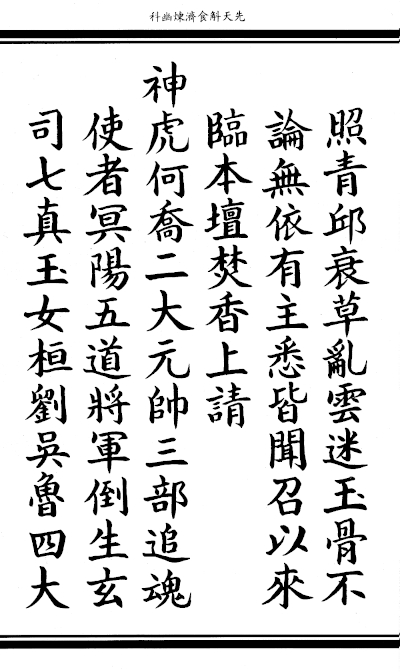 先天斛食濟煉幽科
照青邱衰草亂雲迷玉骨不
論無依有主悉皆聞召以來
臨本壇焚香上請
神虎何喬二大元帥三部追魂
使者冥陽五道將軍倒生玄
司七真玉女桓劉吳魯四大